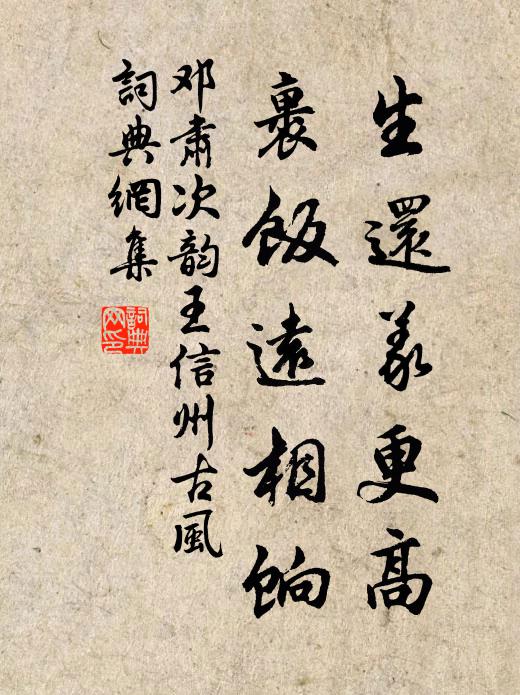 生還義更高
裹飯遠相餉
邓肅次韵王信州古風
詞典網集
詞典
网印